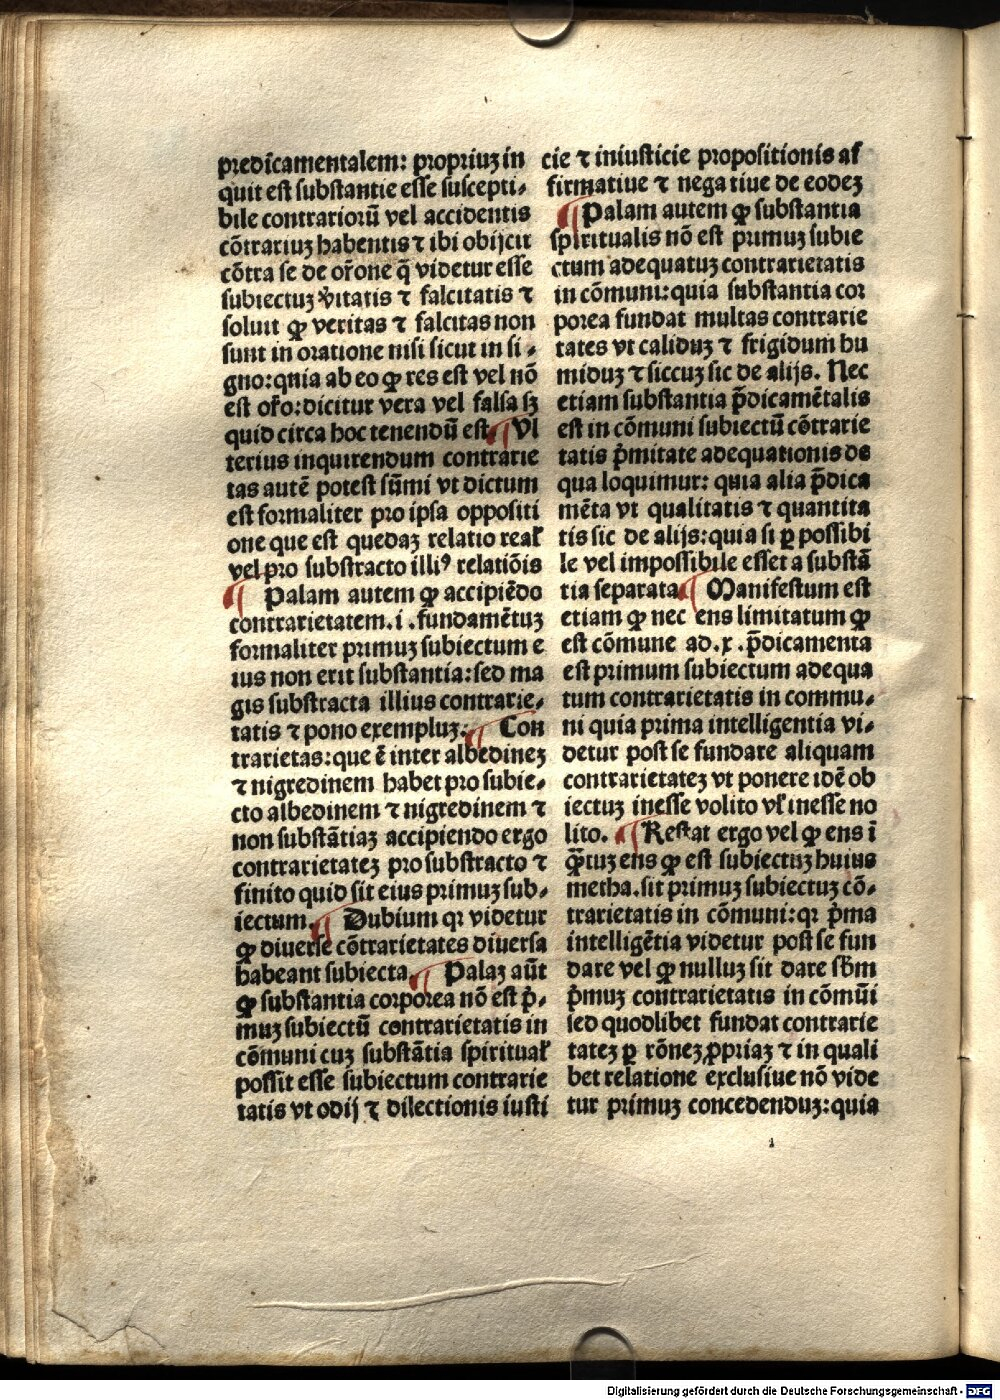 predicamentalem: propriuꝫ in
quit est substantie esse suscepti⸗
bile contrariorū vel accidentis
cōtrariuꝫ habentis ⁊ ibi obijcit
cōtra se de or̄one q̄ videtur esse
subiectuꝫ v̄itatis ⁊ falcitatis ⁊
soluit ꝙ veritas ⁊ falcitas non
sunt in oratione nisi sicut in si⸗
gno: quia ab eo ꝙ res est vel nō
est or̄o: dicitur vera vel falsa sꝫ
quid circa hoc tenendū est. ¶ Vl
terius inquirendum contrarie
tas autē potest sūmi vt dictum
est formaliter pro ipsa oppositi
one que est quedaꝫ relatio realꝭ
vel pro substracto illiꝰ relatiōis
¶ Palam autem ꝙ accipiēdo
contrarietatem .i. fundamētuꝫ
formaliter primuꝫ subiectum e
ius non erit substantia: sed ma
gis substracta illius contrarie⸗
tatis ⁊ pono exempluꝫ. ¶ Con
trarietas: que ē inter albedineꝫ
⁊ nigredinem habet pro subie⸗
cto albedinem ⁊ nigredinem ⁊
non substātiaꝫ accipiendo ergo
contrarietateꝫ pro substracto ⁊
finito quid sit eius primuꝫ sub⸗
iectum. ¶ Dubium qr videtur
ꝙ diuerse cōtrarietates diuersa
habeant subiecta. ¶ Palaꝫ aūt
ꝙ substantia corporea nō est p̄⸗
muꝫ subiectū contrarietatis in
cōmuni cuꝫ substātia spiritualꝭ
possit esse subiectum contrarie
tatis vt odij ⁊ dilectionis iusti
cie ⁊ iniusticie propositionis af
firmatiue ⁊ nega tiue de eodeꝫ
¶ Palam autem ꝙ substantia
spiritualis nō est primuꝫ subie
ctum adequatuꝫ contrarietatis
in cōmuni: quia substantia cor
porea fundat multas contrarie
tates vt caliduꝫ ⁊ frigidum hu
miduꝫ ⁊ siccuꝫ sic de alijs. Nec
etiam substantia p̄dicamētalis
est in cōmuni subiectū cōtrarie
tatis p̄mitate adequationis de
qua loquimur: quia alia p̄dica
mēta vt qualitatis ⁊ quantita
tis sic de alijs: quia si ꝑ possibi
le vel impossibile esset a substā
tia separata. ¶ Manifestum est
etiam ꝙ nec ens limitatum ꝙ
est cōmune ad .x. p̄dicamenta
est primum subiectum adequa
tum contrarietatis in commu⸗
ni quia prima intelligentia vi⸗
detur post se fundare aliquam
contrarietateꝫ vt ponere idē ob
iectuꝫ inesse volito vꝉ inesse no
lito. ¶ Restat ergo vel ꝙ ens ī
q̄tuꝫ ens ꝙ est subiectuꝫ huius
metha. sit primuꝫ subiectuꝫ cō⸗
trarietatis in cōmuni: qr p̄ma
intelligētia videtur post se fun
dare vel ꝙ nulluꝫ sit dare sb̄m
p̄muꝫ contrarietatis in cōmūi
sed quodlibet fundat contrarie
tateꝫ ꝑ rōneꝫ ꝓpriaꝫ ⁊ in quali
bet relatione exclusiue nō vide
tur primuꝫ concedenduꝫ: quia
Digitalisierung gefördert durch die Deutsche Forschungsgemeinschaft - DFG